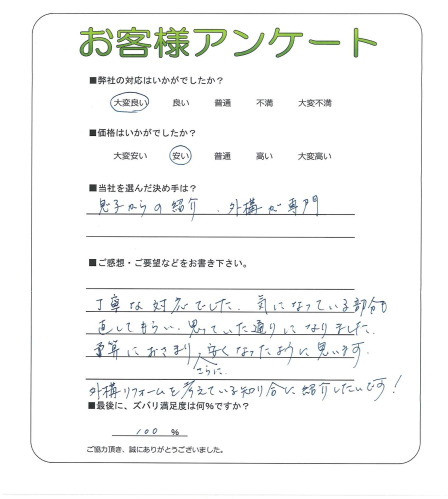 お客様アンケート
■弊社の対応はいかがでしたか？
大変良い　良い　普通　不満　大変不満
■価格はいかがでしたか？
大変安い　安い　普通　高い　大変高い
■当社を選んだ決め手は？
息子からの紹介、外構が専門
■ご感想・ご要望などをお書き下さい。
丁寧な対応でした。気になっている部分も
直してもらい、思っていた通りになりました。
予算におさまり、安くなったように思います。
さらに、
外構リフォームを考えている知り合に紹介したいです！
■最後に、ズバリ満足度は何%ですか？
100 %
ご協力頂き、誠にありがとうございました。